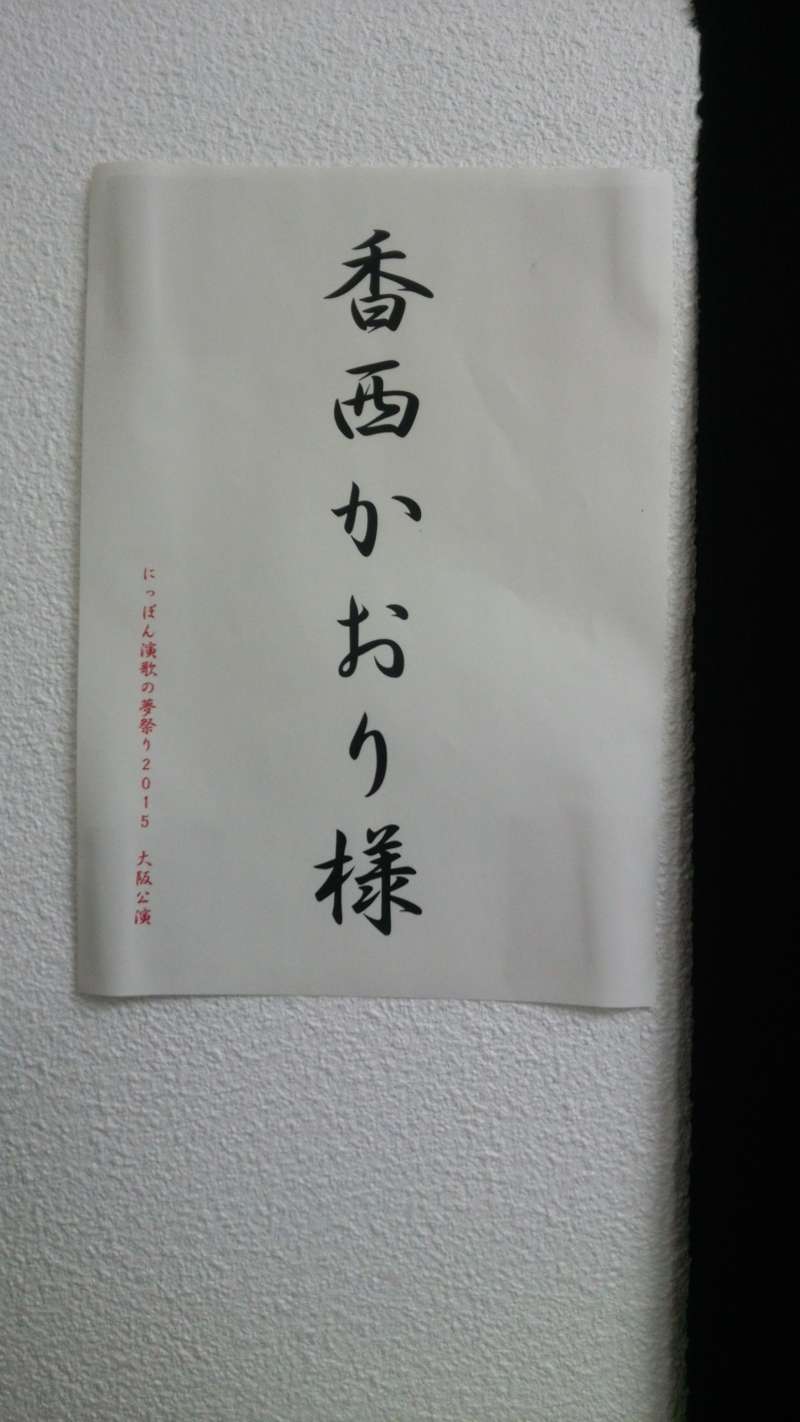 香西かおり様
にっぽん演歌の夢祭り2015 大阪公演